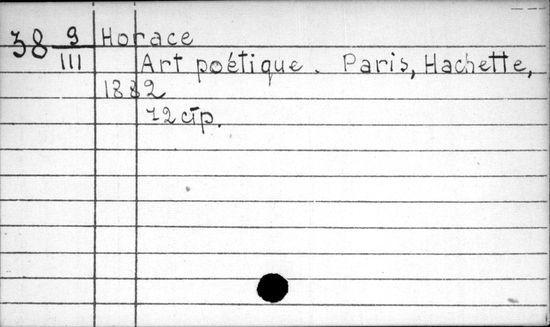 38 9/III Horace
Art poétique. Paris, Hachette,
1882
72 стр.